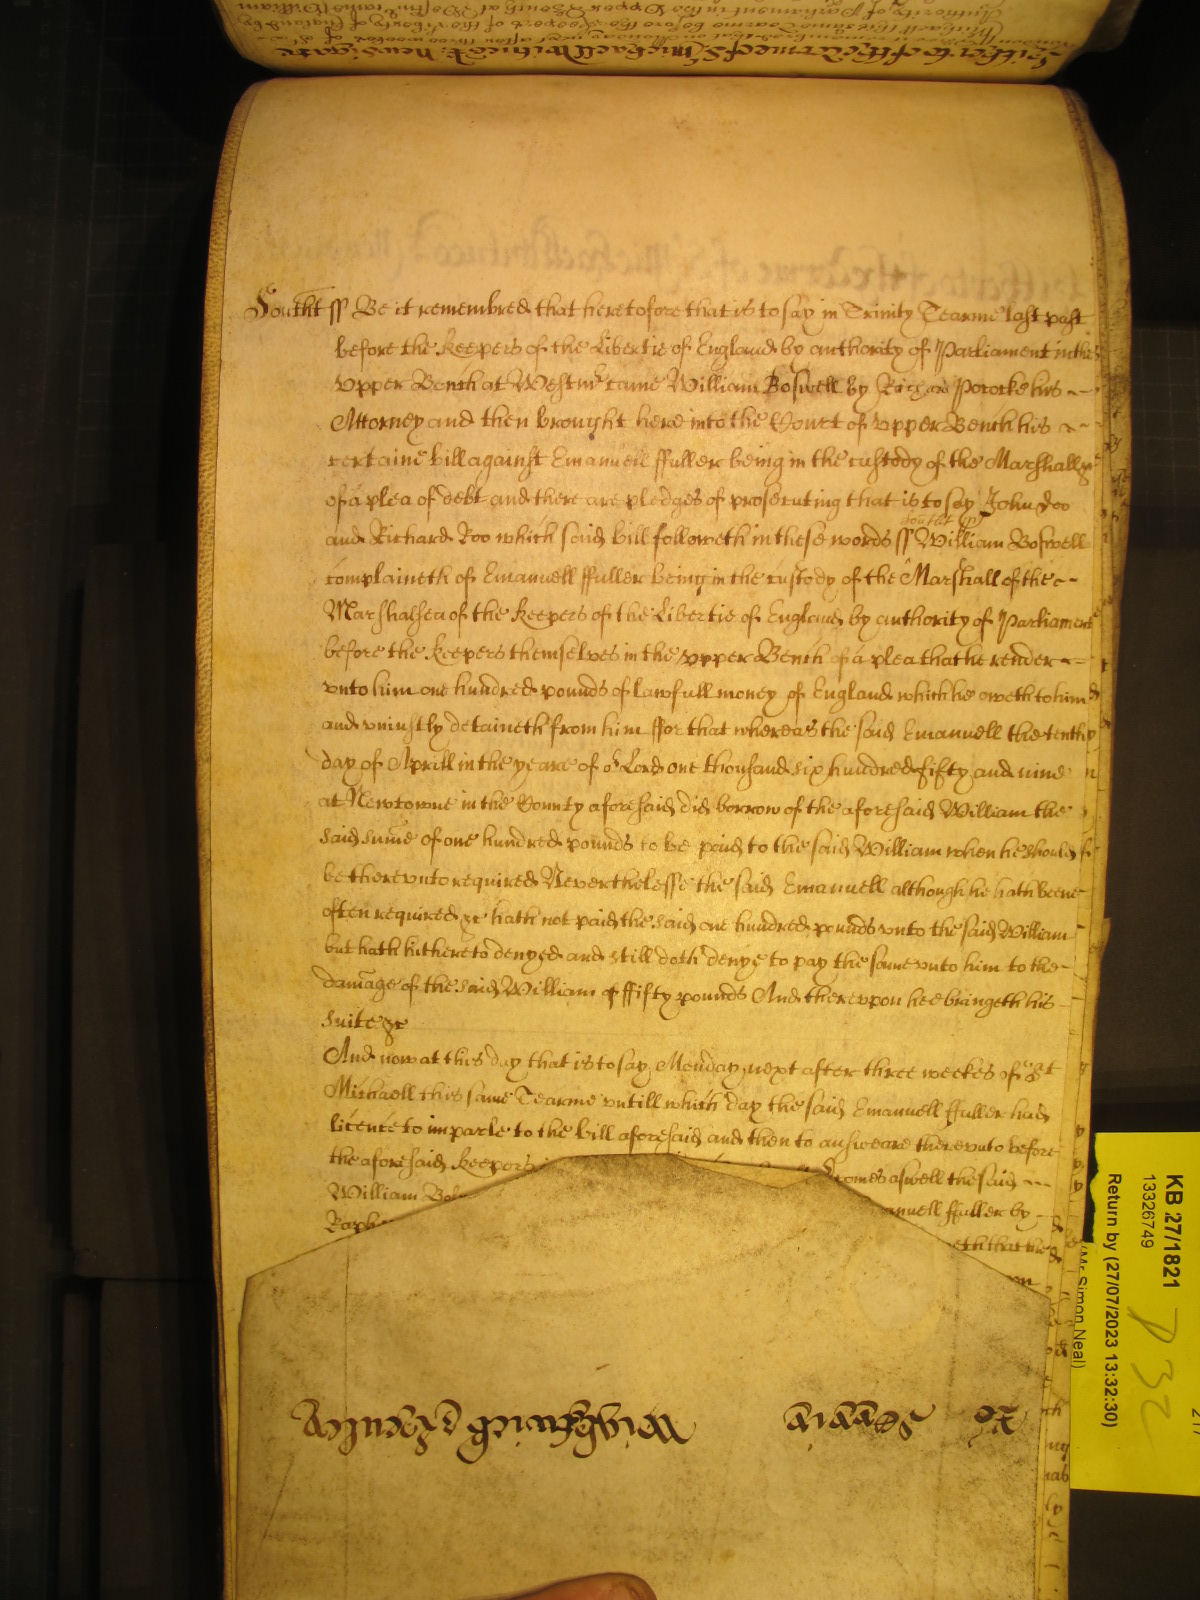 Southt ss Be it remembred that heretofore that is to say in Trinity Tearme last past
before the Keepers of the Libertie of England by authority of Parliament in the
Vpper Bench at Westmr came William Boswell by Richard Pococke his
Attorney and then brought here into the Court of vpper Bench his
certaine bill against Emanuell ffuller being in the custody of the Marshall &c
of a plea of debt and there are pledges of prosecuting that is to say John Doo
and Richard Roo which said bill followeth in these words ss William Boswell
Southt ss
complaineth of Emanuell ffuller being in the custody of the Marshall of the
Marshalsea of the Keepers of the Libertie of England by authority of Parliament
before the Keepers themselves in the vpper Bench of a plea that he render
vnto him one hundred pounds of lawfull money of England which he oweth to him
and vniustly detaineth from him ffor that whereas the said Emanuell the tenth
day of Aprill in the yeare of or Lord one thousand six hundred fifty and nine
at Newtowne in the County aforesaid did borrow of the aforesaid William the
said sume of one hundred pounds to be paid to the said William when he should
be therevnto required Neverthelesse the said Emanuell although he hath beene
often required &c hath not paid the said one hundred pounds vnto the said William
but hath hithereto denyed and still doth denye to pay the same vnto him to the
damage of the said William of ffifty pounds And therevpon hee bringeth his
suite &c
And now at this day that is to say Monday next after three weekes of St
Michaell this same Tearme vntill which day the said Emanuell ffuller had
licence to imparle to the bill aforesaid and then to answeare therevnto before
the aforesaid Keepers comes aswell the said
William ffuller by
that
KB 27/1821
13326749
Return by (27/07/2023 13:32:30)
(Mr Simon Neal)
P 32